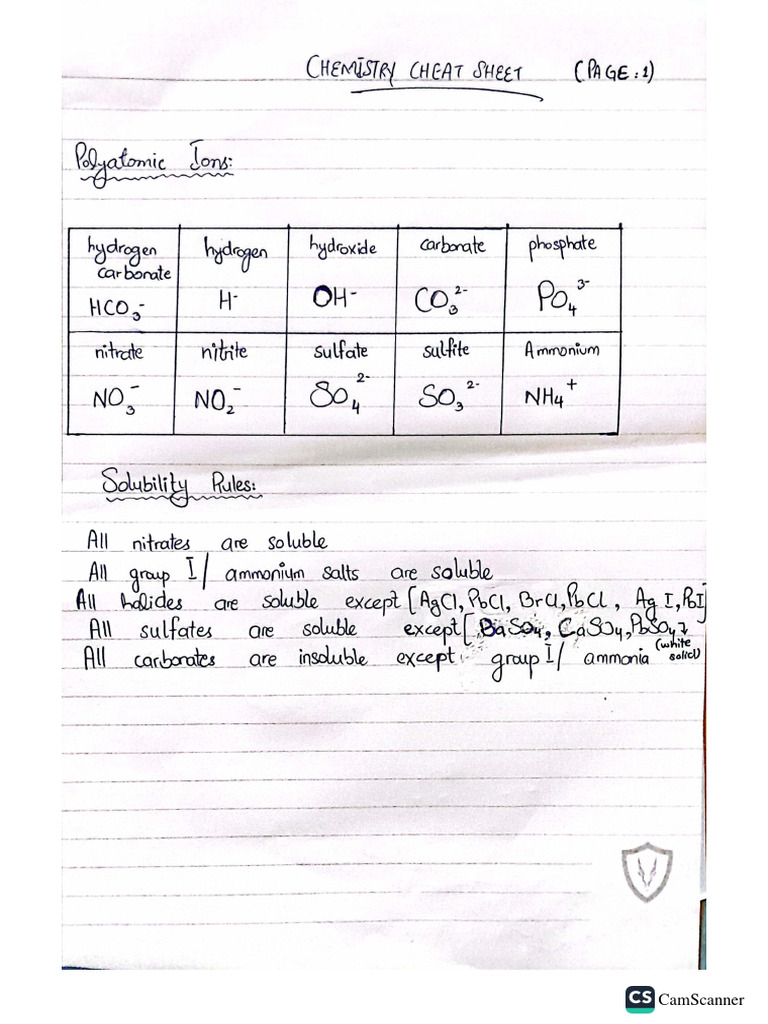 CHEMISTRY CHEAT SHEET (PAGE:1)
Polyatomic Ions:
hydrogen carbonate hydrogen hydroxide carbonate phosphate
HCO₃⁻ H⁻ OH⁻ CO₃²⁻ PO₄³⁻
nitrate nitrite sulfate sulfite Ammonium
NO₃⁻ NO₂⁻ SO₄²⁻ SO₃²⁻ NH₄⁺
Solubility Rules:
All nitrates are soluble
All group I/ ammonium salts are soluble
All halides are soluble except [AgCl, PbCl, BrCl, PbCl, AgI, PbI]
All sulfates are soluble except [BaSO₄, CaSO₄, PbSO₄]
(white solid)
All carbonates are insoluble except group I/ ammonia
CS CamScanner